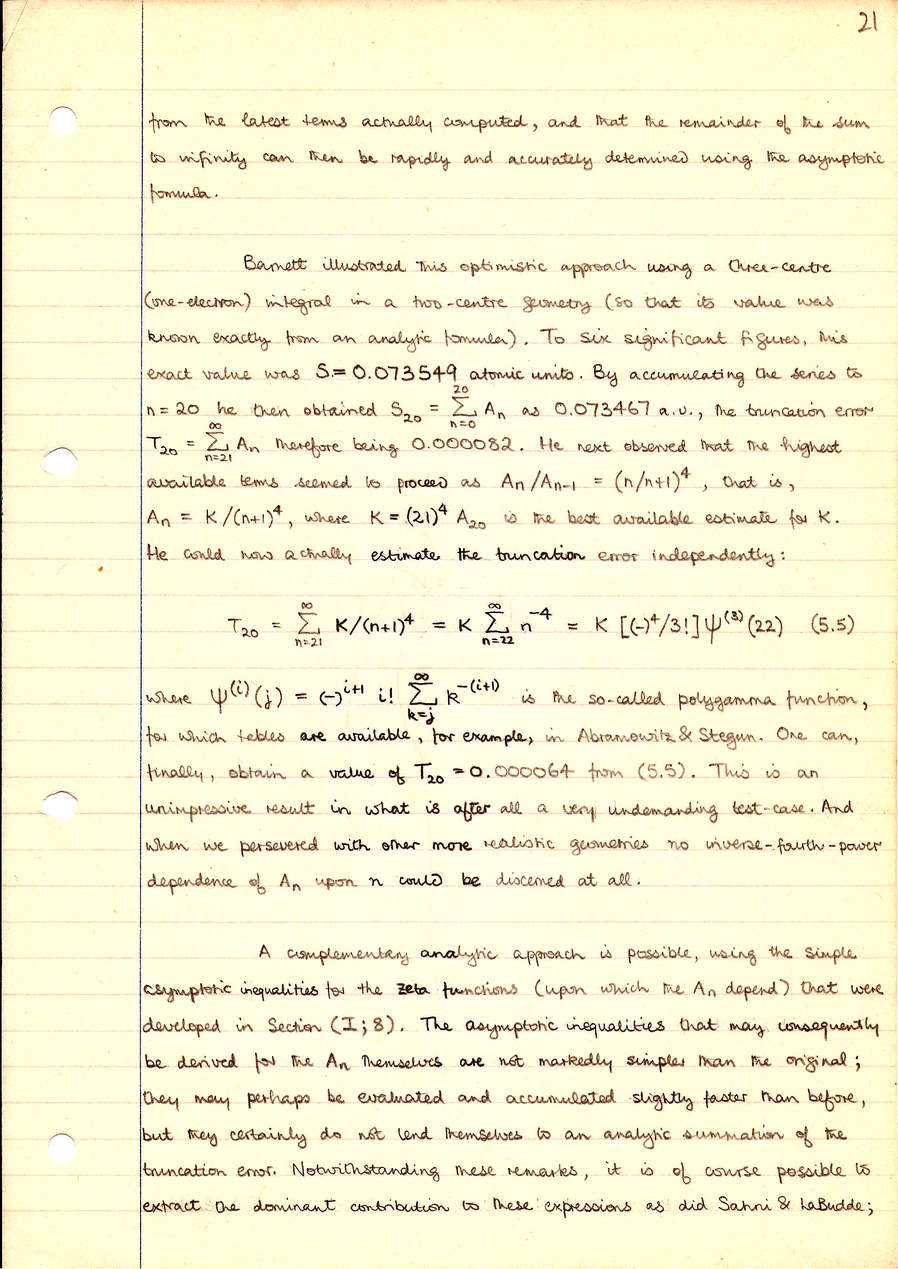 21
from the latest terms actually computed, and that the remainder of the sum
to infinity can then be rapidly and accurately determined using the asymptotic
formula.
Barnett illustrated this optimistic approach using a three-centre
(one-electron) integral in a two-centre geometry (so that its value was
known exactly from an analytic formula). To six significant figures, this
exact value was S = 0.073549 atomic units. By accumulating the series to
n = 20 he then obtained S₂₀ = ∑_{n=0}^{20} Aₙ as 0.073467 a.u., the truncation error
T₂₀ = ∑_{n=21}^{∞} Aₙ therefore being 0.000082. He next observed that the highest
available terms seemed to proceed as Aₙ/Aₙ₋₁ = (n/n+1)⁴, that is,
Aₙ = K/(n+1)⁴, where K = (21)⁴ A₂₀ is the best available estimate for K.
He could now actually estimate the truncation error independently:
T₂₀ = ∑_{n=21}^{∞} K/(n+1)⁴ = K ∑_{n=22}^{∞} n⁻⁴ = K [(-)⁴/3!] ψ⁽³⁾(22) (5.5)
where ψ⁽ⁱ⁾(j) = (-)ⁱ⁺¹ i! ∑_{k=j}^{∞} k^{-(i+1)} is the so-called polygamma function,
for which tables are available, for example, in Abramowitz & Stegun. One can,
finally, obtain a value of T₂₀ = 0.000064 from (5.5). This is an
unimpressive result in what is after all a very undemanding test-case. And
when we persevered with other more realistic geometries no inverse-fourth-power
dependence of Aₙ upon n could be discerned at all.
A complementary analytic approach is possible, using the simple
asymptotic inequalities for the zeta functions (upon which the Aₙ depend) that were
developed in Section (I;8). The asymptotic inequalities that may consequently
be derived for the Aₙ themselves are not markedly simpler than the original;
they may perhaps be evaluated and accumulated slightly faster than before,
but they certainly do not lend themselves to an analytic summation of the
truncation error. Notwithstanding these remarks, it is of course possible to
extract the dominant contribution to these expressions as did Sahni & LaBudde;